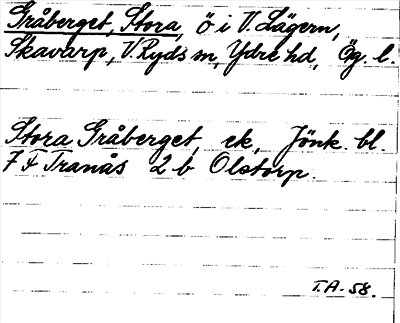 Gråberget, Stora, ö i V. Lägern,
Skavarp, V. Ryds sn, Ydre hd, Ög. l.
Stora Gråberget, ek, Jönk. bl.
7 F Tranås 2 b Olstorp.
T.A-58.